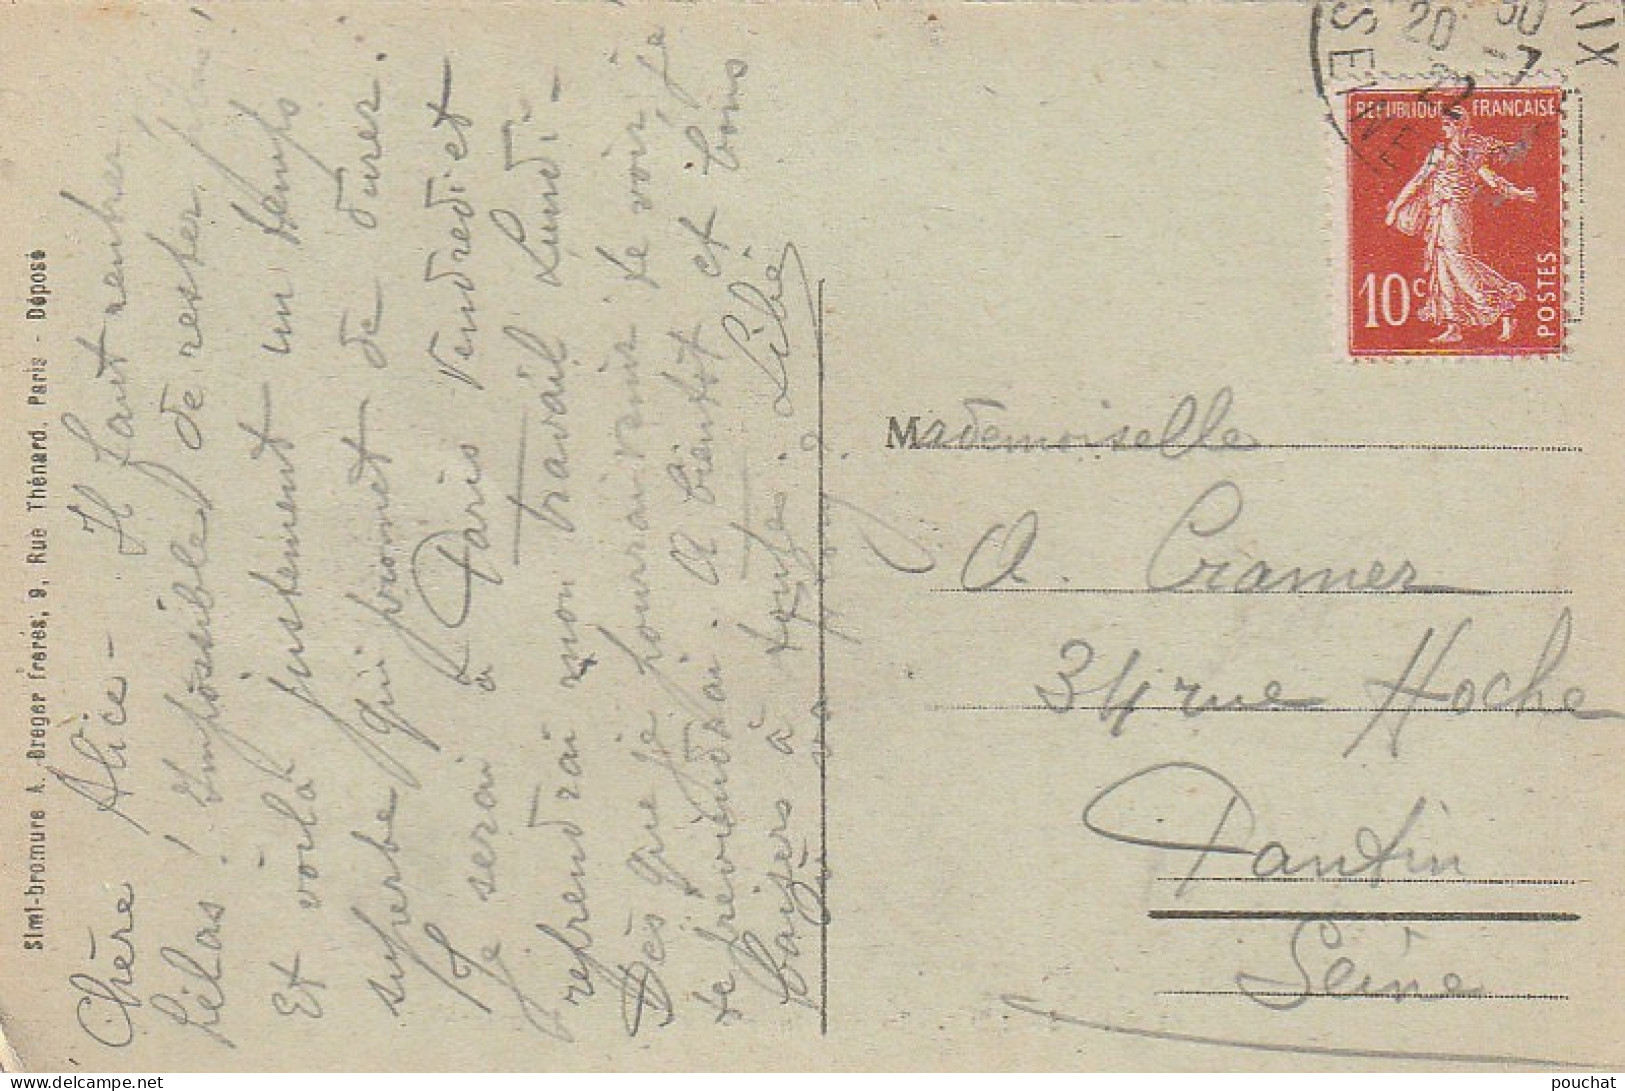 Simi-bromure A. Breger frères, 9, Rue Thénard, Paris - Déposé
Chère Alice - Il faut rentrer
hélas ! Impossible de rester plus !
Et voilà justement un temps
superbe qui promet de durer.
Je serai à Paris Vendredi et
reprendrai mon travail Lundi -
Dès que je pourrai venir te voir, je
te préviendrai. A bientôt et bons
baisers à toutes.
RÉPUBLIQUE FRANÇAISE
10c
POSTES
SEINE
20 30
-7
22
Mademoiselle
A. Cramer
34 rue Hoche
Pantin
Seine
pouchat
www.delcampe.net